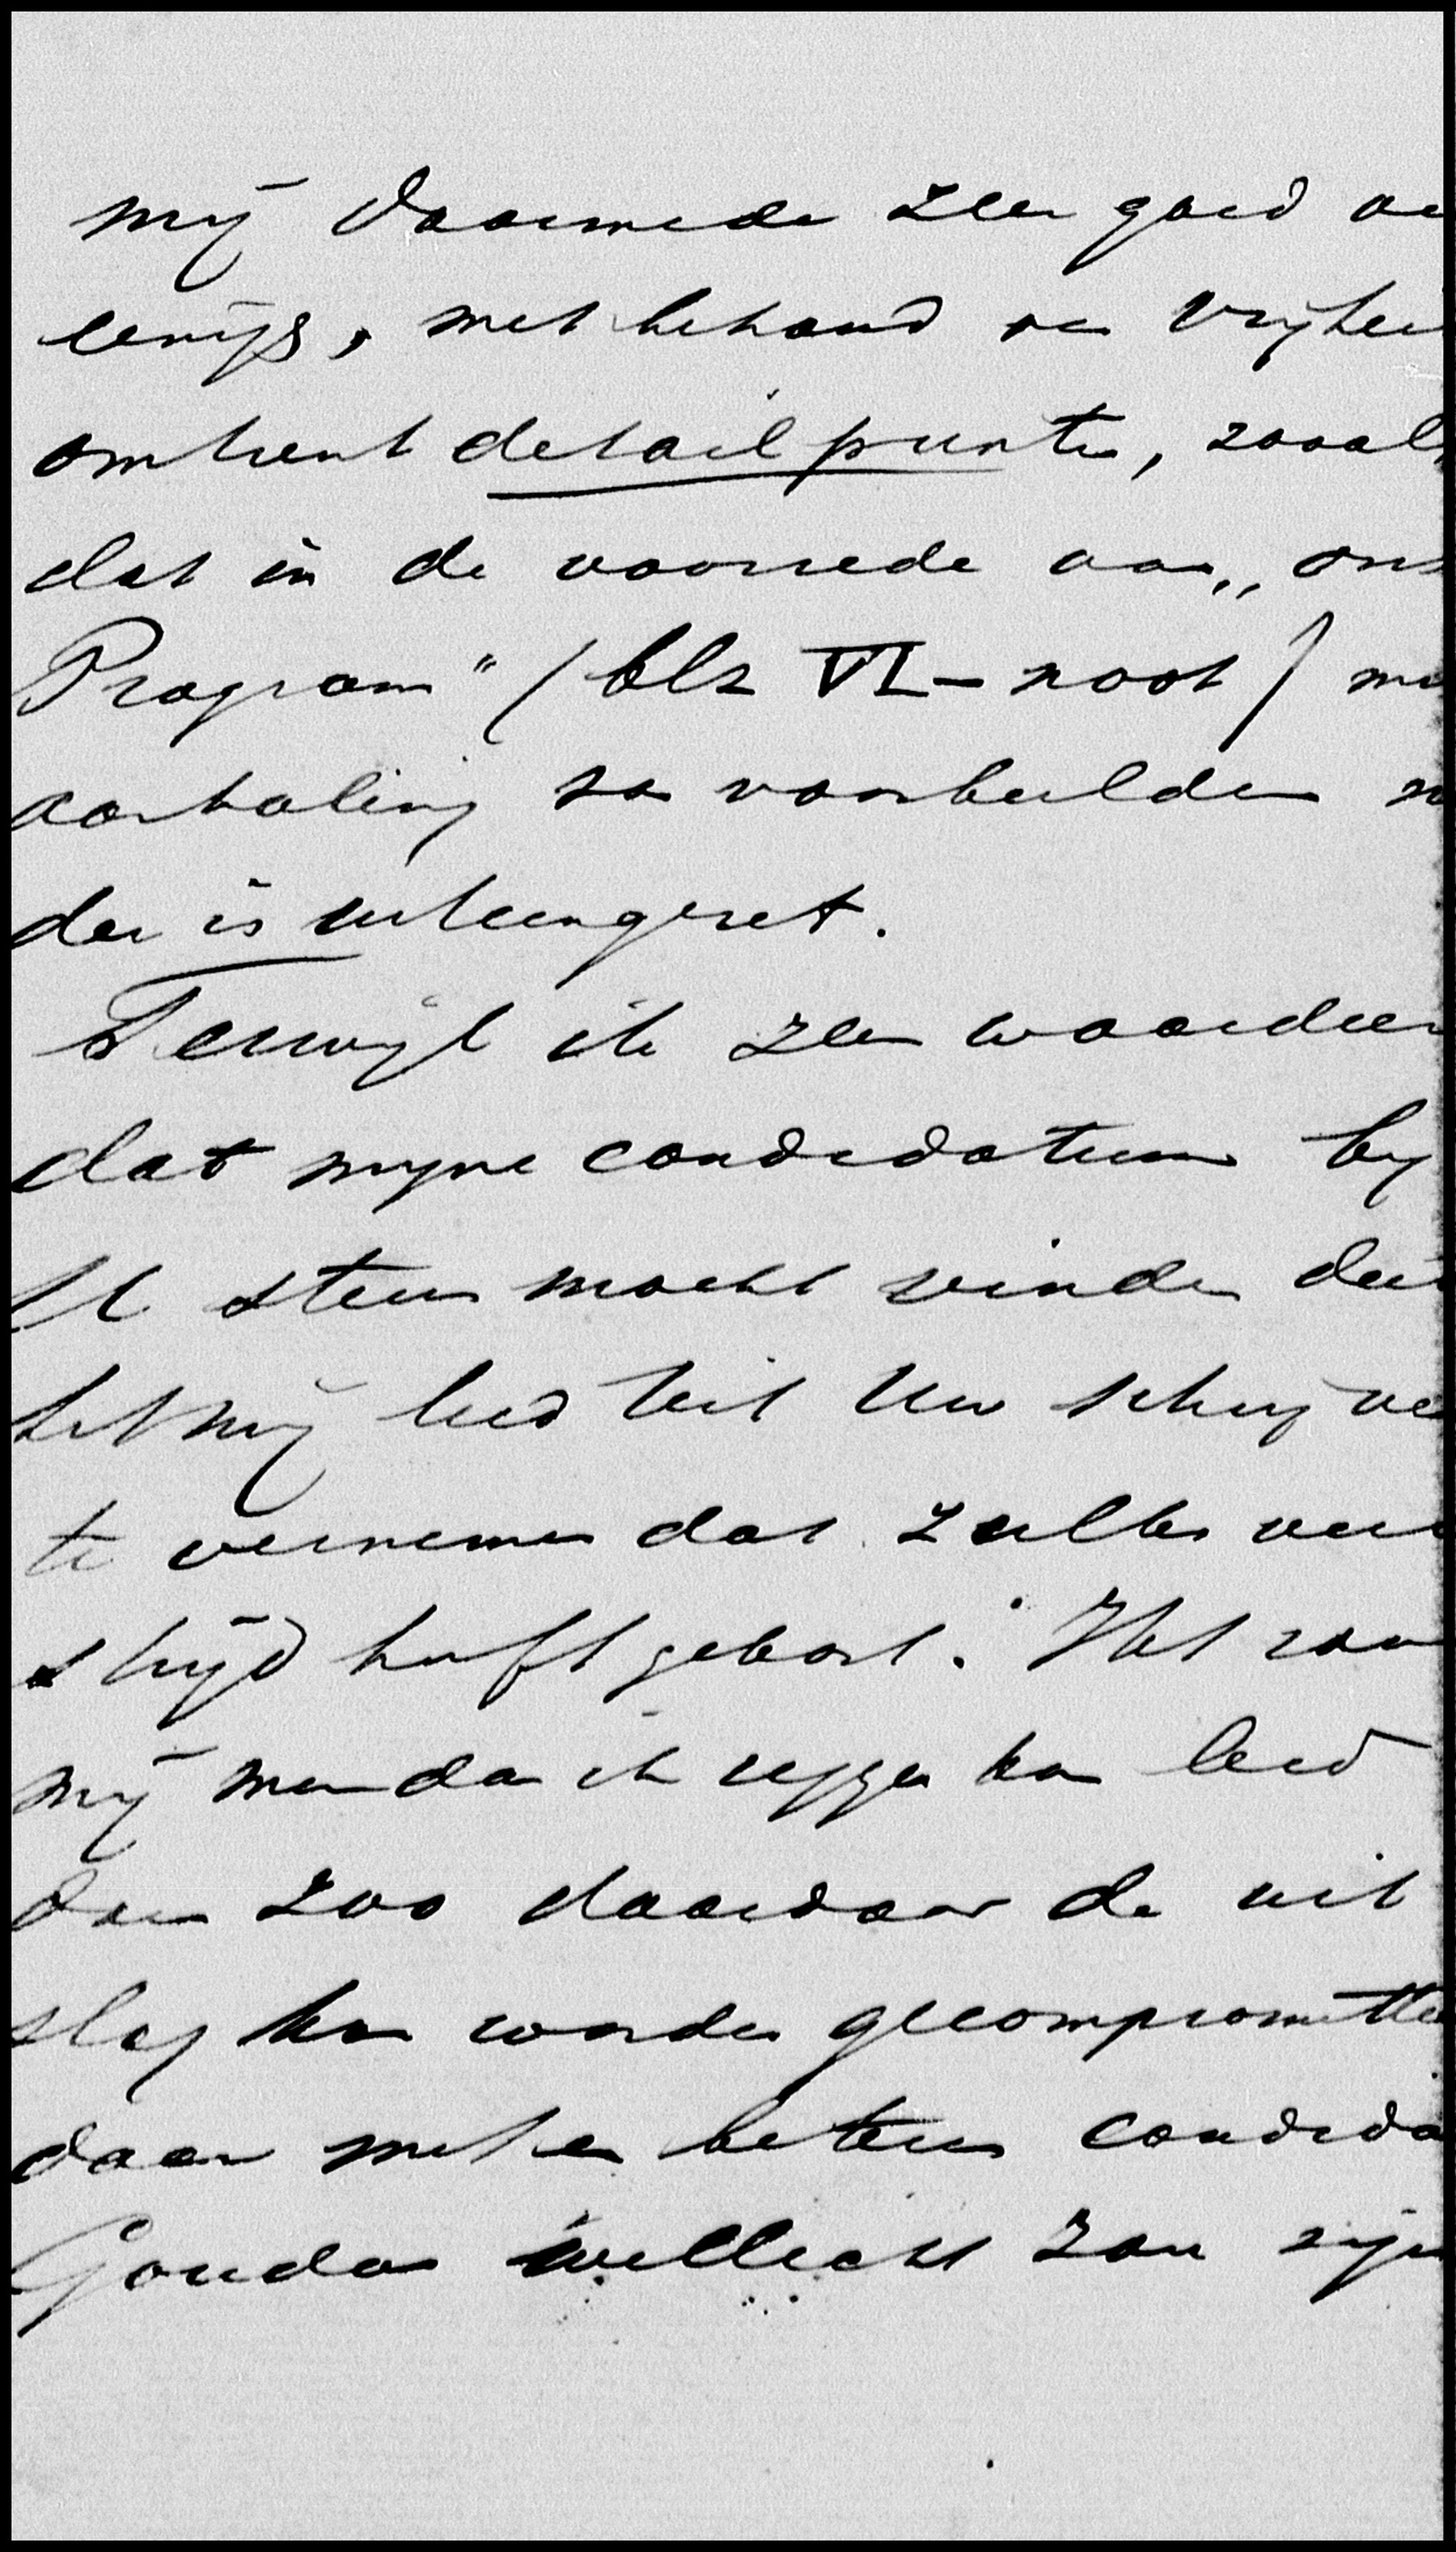 mij daarmede zeer goed ve
eenigs, met behoud van vrijhei
omtrent detailpunten, zooals
dat in de voorrede van „ons
Program" (blz VI - noot) met
aanhaling van voorbeelden na
der is uiteengezet.
Terwijl ik zeer waardeer
dat mijne candidatuur bij
U steun mocht vinden deed
het mij leed uit Uw schrijven
te vernemen dat zulks veel
strijd heeft gekost. Het zou
mij meer dan ik zeggen kan leed
doen zoo daardoor de uit
slag kon worden gecompromittee
daar met een beteren candida
Gouda wellicht zou zijn